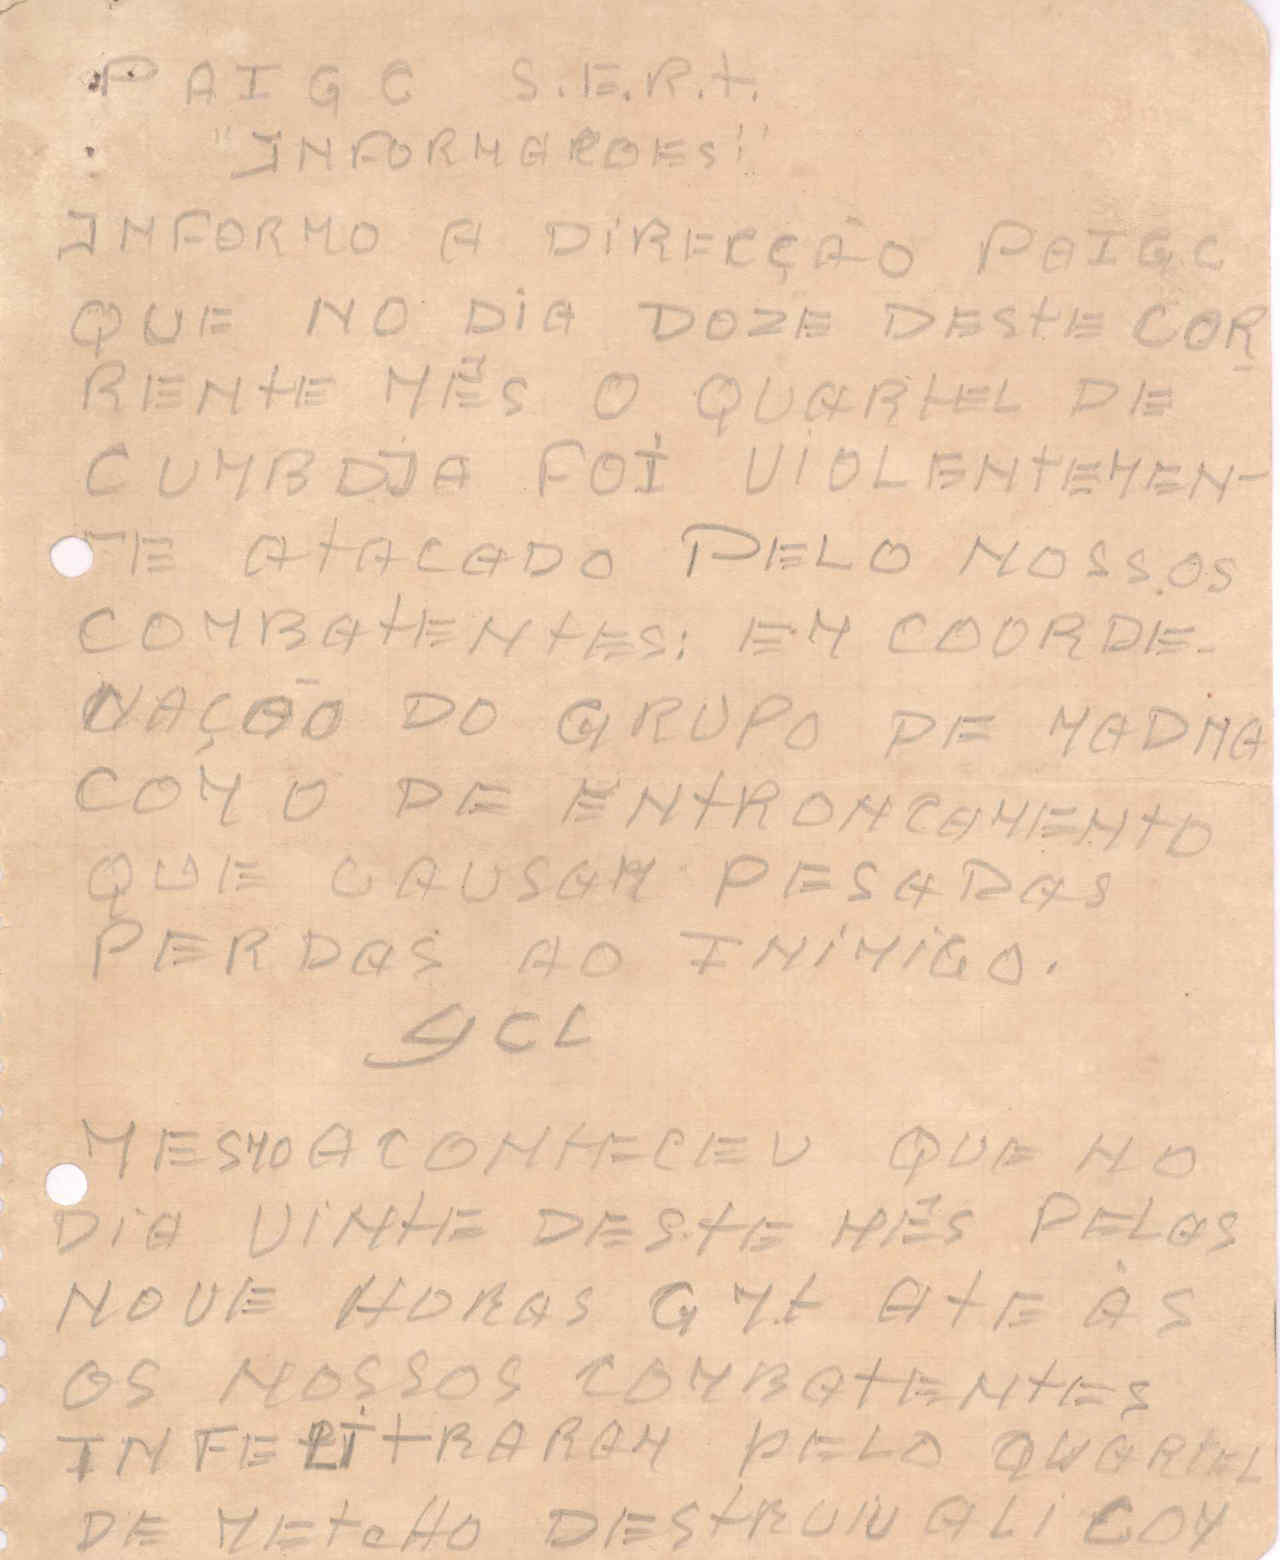 PAIGC S.E.R.t.
"INFORMAÇOES"
INFORMO A DIRECÇÃO PAIGC
QUE NO DIA DOZE DESTE COR
RENTE MÊS O QUARTEL DE
CUMBDJA FOI VIOLENTEMEN-
TE ATACADO PELO NOSSOS
COMBATENTES: EM COORDE-
NAÇÃO DO GRUPO DE MADINA
COM O DE ENTRONCAMENTO
QUE CAUSAM PESADAS
PERDAS AO INIMIGO.
GCL
MESMO ACONTECEU QUE NO
DIA VINTE DESTE MÊS PELAS
NOVE HORAS GMt ATE ÀS
OS NOSSOS COMBATENTES
INFELITRARAM PELO QUARTEL
DE METCHO DESTRUIU ALI COM